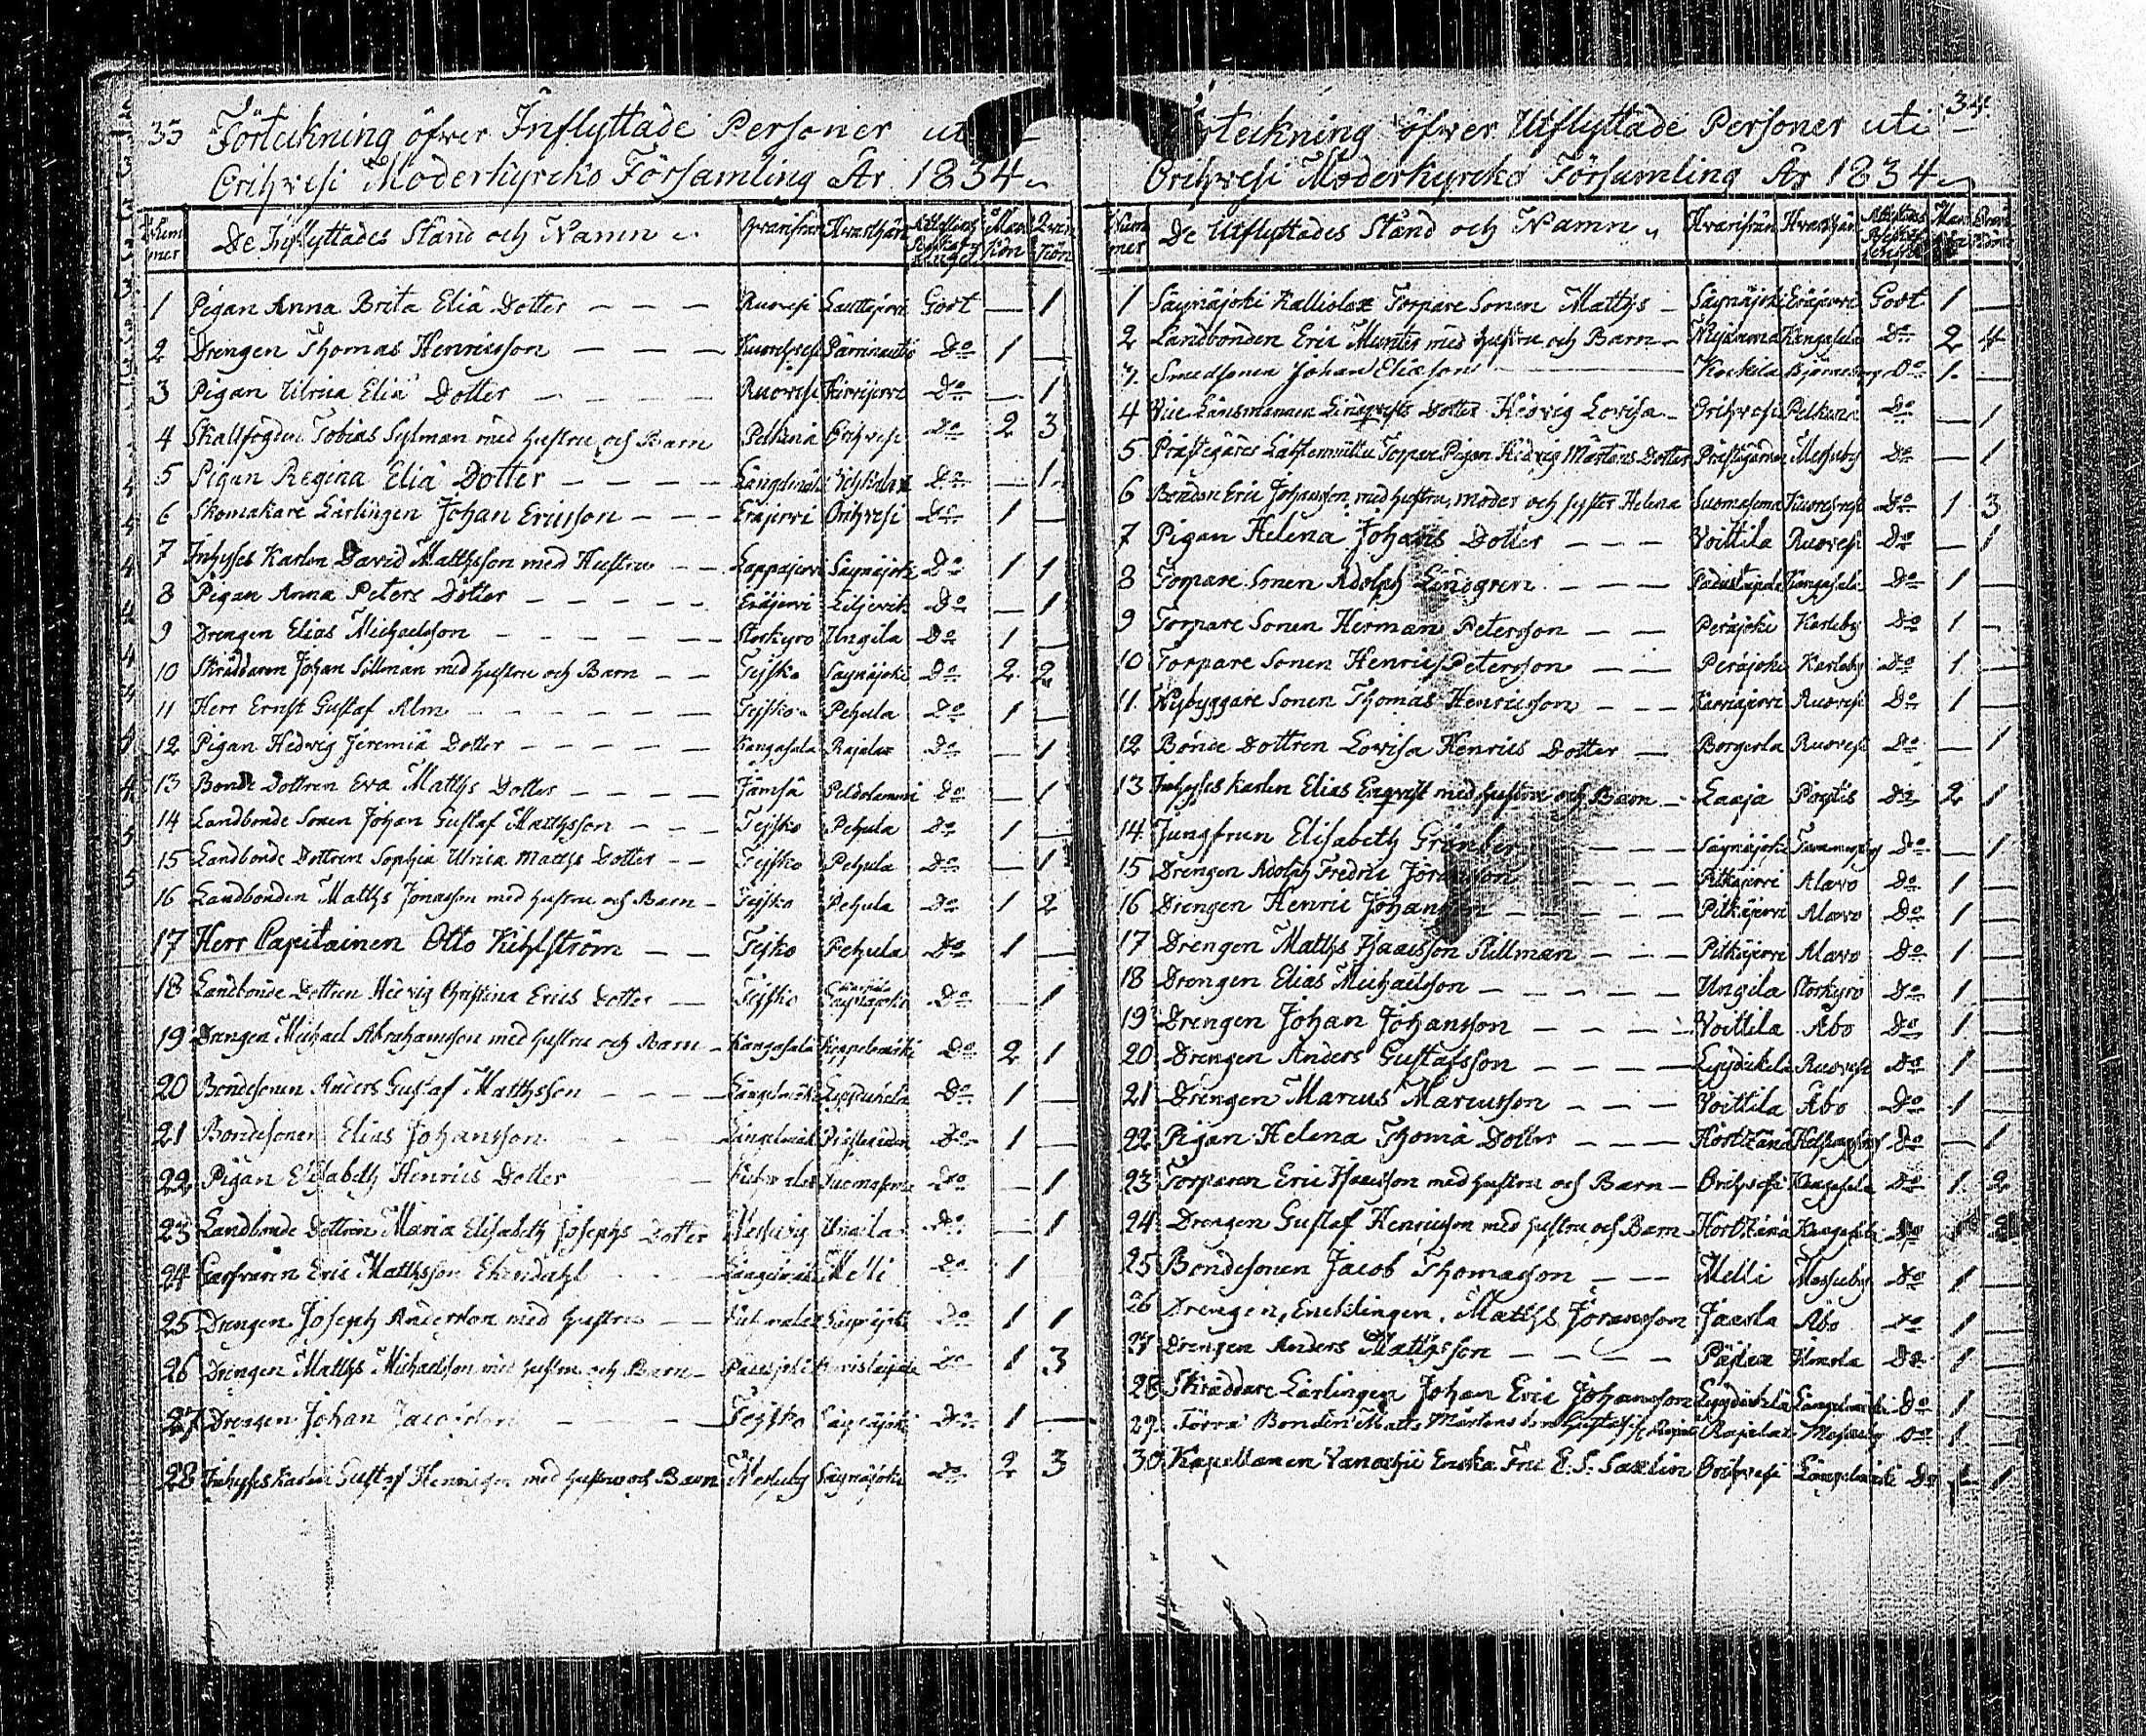 33 Förteckning öfver Inflyttade Personer
Orihvesi Moderkyrcko Församling År 1834
Num mer De Inflyttades Stånd och Namn Hvarifrån Hvarthän Man kön Qvin kön
1 Pigan Anna Brita Eliä Dotter — — — Ruovesi Lauttajervi Godt — 1
2 Drengen Thomas Henricsson — — — Kuorehvesi Pärrinautio Do 1 —
3 Pigan Ulrica Eliä Dotter — — — — Ruovesi Hirvijervi Do — 1
4 Skallfogden Tobias Sylman med hustru och Barn Pelkenä Orihvesi Do 2 3
5 Pigan Regina Eliä Dotter — — — — Längelmäki Do — 1
6 Skomakare Lärlingen Johan Ericsson — — — Eräjervi Orihvesi Do 1 —
7 Inhyses Karlen David Matthsson med Hustru — — Lappajervi Säynäjoki Do 1 1
8 Pigan Anna Peters Dotter — — — — — Eräjervi Do — 1
9 Drengen Elias Michaelsson — — — — — Storkyro Ungila Do 1 —
10 Skräddaren Johan Sillman med hustru och Barn — — Tejsko Säynäjoki Do 2 2
11 Herr Ernst Gustaf Alm — — — — — — Tejsko Pehula Do 1 —
12 Pigan Hedvig Jeremiä Dotter — — — — — Kangasala Rajalax Do — 1
13 Bonde Dottren Eva Matths Dotter — — — — Jämsä Do — 1
14 Landbonde Sonen Johan Gustaf Matthsson — — — Tejsko Pehula Do 1 —
15 Landbonde Dottren Sophia Ulrica Matths Dotter — — Tejsko Pehula Do — 1
16 Landbonden Matths Jonasson med hustru och Barn — Tejsko Pehula Do 1 2
17 Herr Capitainen Otto Kihlström — — Tejsko Pehula Do 1 —
18 Landbonde Dottren Hedvig Christina Erics Dotter — Tejsko Säynäjoki Do — 1
19 Drengen Michael Abrahamsson med hustru och Barn — Kangasala Do 2 1
20 Bondesonen Anders Gustaf Matthsson — — — — Längelmäki Do 1 —
21 Bondesonen Elias Johansson Längelmäki Do 1 —
22 Pigan Elisabeth Henrics Dotter Suomasema Do — 1
23 Landbonde Dottren Maria Elisabeth Josephs Dotter Messuby Ungila Do — 1
24 Eric Matthsson Ekendahl Längelmäki Melli Do 1
25 Drengen Joseph Andersson med hustru — — Do 1 1
26 Drengen Matths Michaelsson med hustru och Barn — Do 1 3
27 Drengen Johan — — Tejsko Säynäjoki Do 1 —
28 Inhyses Karlen Gustaf Henricson med hustru och Barn Messuby Säynäjoki Do 2 3
34
teckning öfver Utflyttade Personer uti
Orihvesi Moderkyrcko Församling År 1834
Num mer De Utflyttades Stånd och Namn Hvarifrån Hvarthän
1 Säynäjoki Kalliolax Torpare Sonen Matths — Säynäjoki Eräjervi Godt 1 —
2 Landbonden Eric Munter med hustru och Barn — Kangasala Do 2 4
3. Smedsonen Johan Eliasson Kockila Björneborg Do 1 —
4 Vice Länsmannen Lindqvists Dotter Hedvig Lovisa — Orihvesi Pelkäne Do — 1
5 Prästegårds Torpare Pigan Hedvig Mårtens Dotter Prästgården Messuby Do — 1
6 Bonden Eric Johansson med hustru, moder och syster Helena Suomasema Kuorehvesi Do 1 3
7 Pigan Helena Johans Dotter — — — Voitila Ruovesi Do — 1
8 Torpare Sonen Adolph Lindgren — — — Kangasala Do 1 —
9 Torpare Sonen Herman Petersson — — Peräjoki Karleby Do 1 —
10 Torpare Sonen Henric Petersson — — Peräjoki Karleby Do 1 —
11 Nybyggare Sonen Thomas Henricsson — — Ruovesi Do 1 —
12 Bonde Dottren Lovisa Henrics Dotter — Ruovesi Do — 1
13 Inhyses Karlen Elias Enqvist med hustru och Barn — Laaja Do 2 1
14 Jungfrun Elisabeth — — — Säynäjoki Do — 1
15 Drengen Adolph Fredric — — — Pitkäjervi Alavo Do 1 —
16 Drengen Henric Johansson — — — — Pitkäjervi Alavo Do 1 —
17 Drengen Matths Isaacsson Rillman — — — Pitkäjervi Alavo Do 1 —
18 Drengen Elias Michaelsson — — — — — Ungila Storkyro Do 1 —
19 Drengen Johan Johansson — — — — Voittila Åbo Do 1 —
20 Drengen Anders Gustafsson — — — — Ruovesi Do 1 —
21 Drengen Marcus Marcusson — — — Voittila Åbo Do 1 —
22 Pigan Helena Thomä Dotter — — — Helsingfors Do — 1
23 Torparen Eric Isacsson med hustru och Barn — Orihvesi Kangasala Do 1 2
24 Drengen Gustaf Henricsson med hustru och Barn Kangasala Do
25 Bondesonen Jacob Thomasson — — — Melli Messuby Do 1 —
26 Drengen, Encklingen, Matths Göransson Åbo Do 1 —
27 Drengen Anders Matthsson — — — — Do 1 —
28 Skräddare Lärlingen Johan Eric Johansson Längelmäki Do 1 —
29. Bonden Matts Mårtens Son Gustaf Rajalax Messuby Do 1 —
30 Kapellanen Enka Fru E. S. Saxlin Orihvesi Längelmäki Do — 1